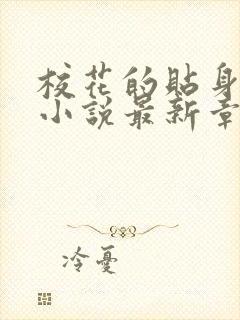 校花的貼身
小說最新章
冷憂